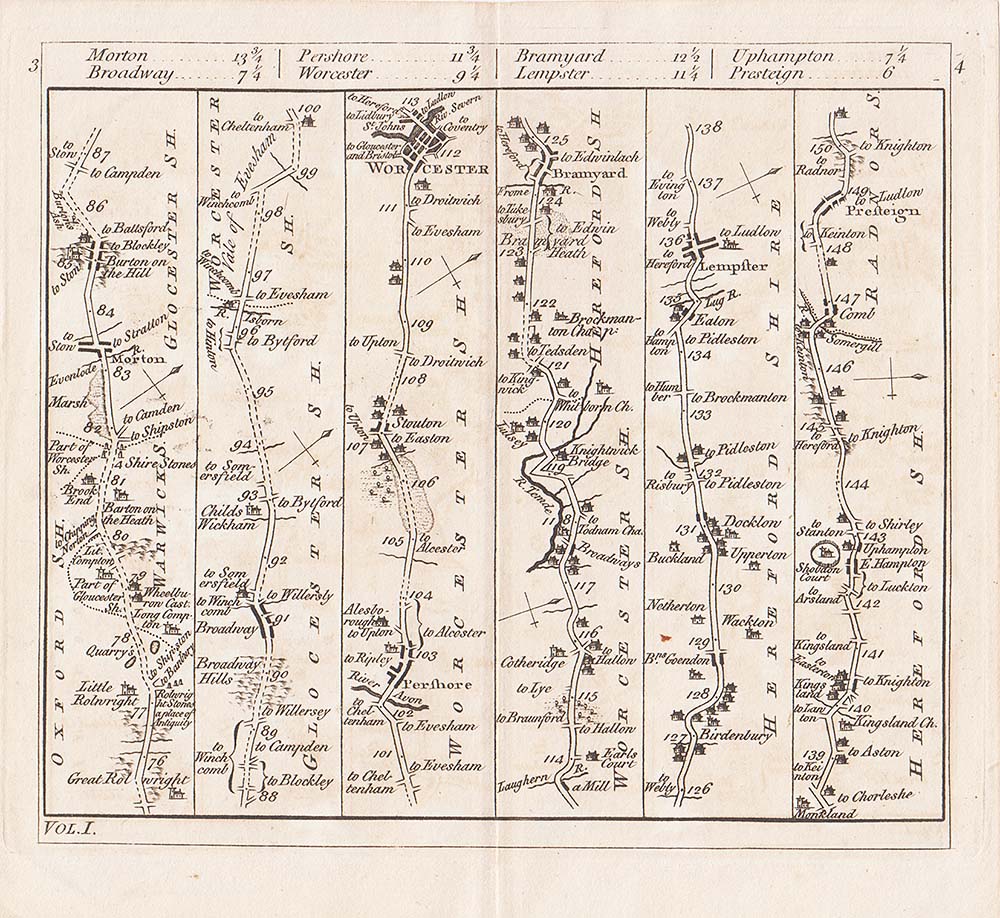 3
Morton 13 3/4
Broadway 7 1/4
Pershore 11 3/4
Worcester 9 1/4
Bramyard 12 1/2
Lempster 11 1/4
Uphampton 7 1/4
Presteign 6
4
to Stow
87
to Campden
86
to Battsford
to Blockley
Burton on
the Hill
85
to Stow
84
to Stow
to Stratton
Morton
R.
Evenlode
83
Marsh
to Camden
to Shipston
82
Part of
Worcester
Sh.
4 Shire Stones
Brook
End
81
Barton on
the Heath
to Chipping
Norton
80
Lit.
Compton
Part of
Gloucester
Sh.
79
Wheelbu-
row Cast.
Long Comp-
ton
78
Quarrys
to Shipston
to Banbury
Little
Rolwright
77
Rolwrig
ht Stones
a place of
Antiquity
76
Great Rolwright
OXFORD SH.
WARWICKS
GLOCESTER SH.
100
to
Cheltenham
to Evesham
99
Winchcomb
Vale of
98
to
Winchcomb
97
to Evesham
R.
Isborn
96
to Hinton
to Bytford
95
94
to Som-
ersfield
93
to Bytford
Childs
Wickham
92
to Som
ersfield
to Willersly
to Winch
comb
91
Broadway
Broadway
Hills
90
to Willersey
89
to
Winch
comb
to Campden
to Blockley
88
WORCESTER
SH.
GLOCESTERSH.
to Hereford
113
to Ludlow
Riv. Severn
to Lidbury
St. Johns
to
Coventry
to Gloucester
and Bristol
112
WORCESTER
to Droitwich
111
to Evesham
110
109
to Upton
to Droitwich
108
Stouton
to Upton
to Easton
107
106
105
to
Alcester
104
Alesbo-
rough
to Upton
to Alcester
to Ripley
103
River
Pershore
Avon
to
Chel
tenham
102
to Evesham
101
to Evesham
to Chel-
tenham
WORCESTERSHIRE
to
Hereford
125
to Edwinlach
Bramyard
Frome
R.
124
to Tuke
sbury
to Edwin
Bramyard
Heath
123
122
Brockman-
ton Chap.
to Tedsden
121
to King-
wick
Whitborn Ch.
120
Lulsey
Knightwick
Bridge
119
R. Temde
118
Codnam Cha.
Broadways
117
116
to
Hallow
Cotheridge
to Lye
115
to Braunford
to Hallow
114
Earls
Court
R.
Laughern
a Mill
HEREFORDSH
WORCESTERSH.
138
to
Eving
ton
137
to
Webly
136
to Ludlow
to
Hereford
Lempster
135
Lug R.
Eaton
to
Hamp
ton
to Pidleston
134
to Hum
ber
to Brockmanton
133
to Pidleston
to
Risbury
132
to Pidleston
131
Docklon
Buckland
Upperton
130
Netherton
Wackton
129
Goendon
128
Birdenbury
127
to
Webly
126
HEREFORDSHIRE
150
to Knighton
to
Radnor
149
to
Ludlow
Presteign
to Keinton
148
147
Comb
to Kinton
Somergill
146
145
to
Hereford
to Knighton
144
to
Stanton
to Shirley
143
Uphampton
E. Hampton
Shobdon
Court
to Luckton
to
Arsland
142
to
Kingsland
141
to
Easterton
to Knighton
Kings
land
140
to Lan
ton
Kingsland Ch.
139
to Aston
to Kei
nton
to Chorleshe
Monkland
RADNORS.
HEREFORDSH
VOL.I.